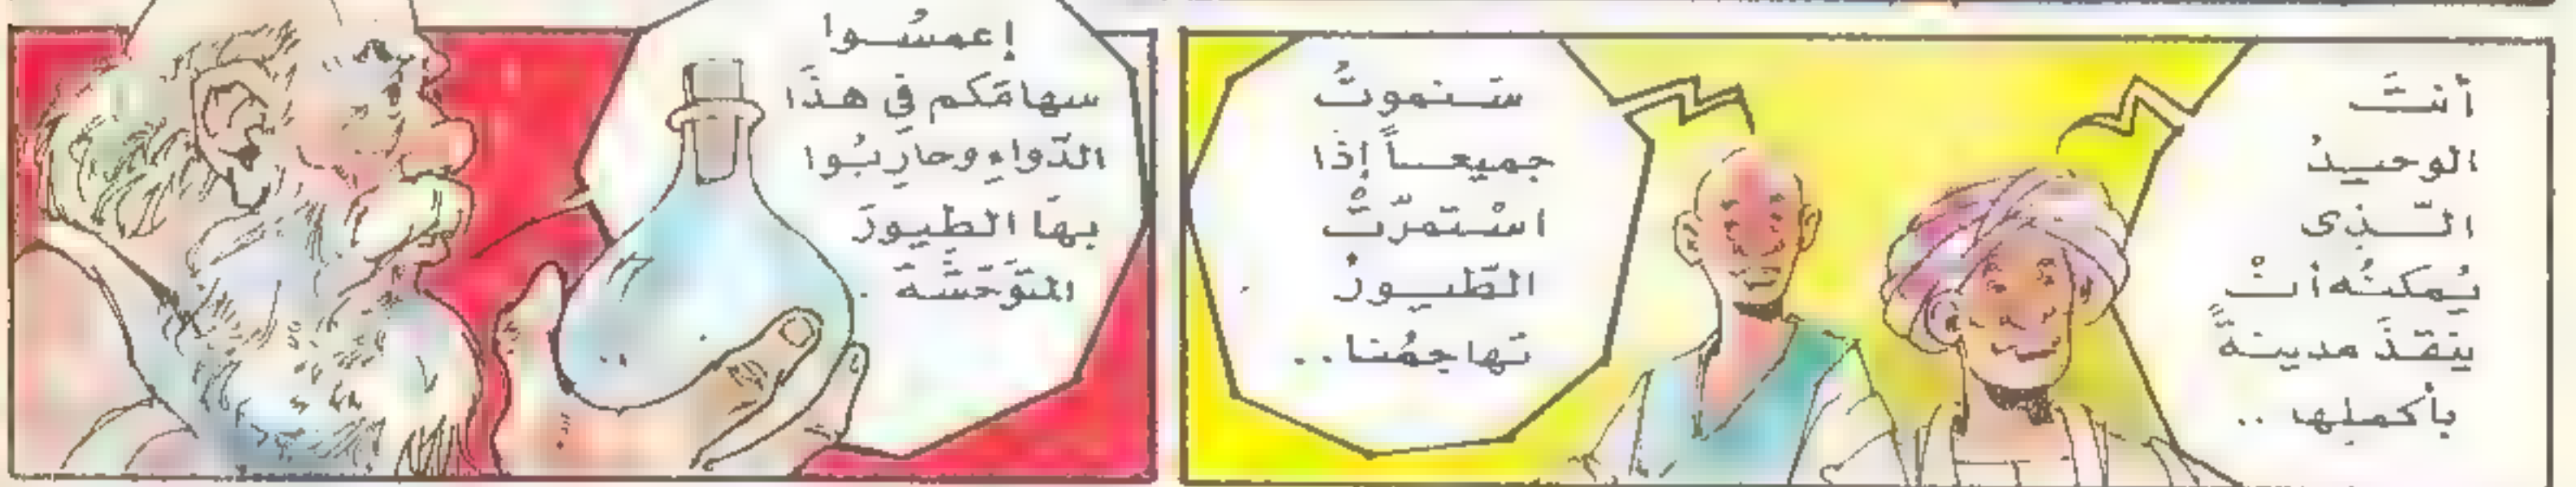 أنتَ
الوحيدُ
الّذى
يُمكنُه أنْ
يُنقذَ مدينةً
بأكملِها ..
سَنموتُ
جميعاً إذَا
اسْتمرّتْ
الطّيورُ
تهاجمُنا..
إغمسُوا
سهامَكم فِي هذَا
الدّواءِ وحارِبُوا
بهَا الطيورَ
المتَوَحّشَةَ .